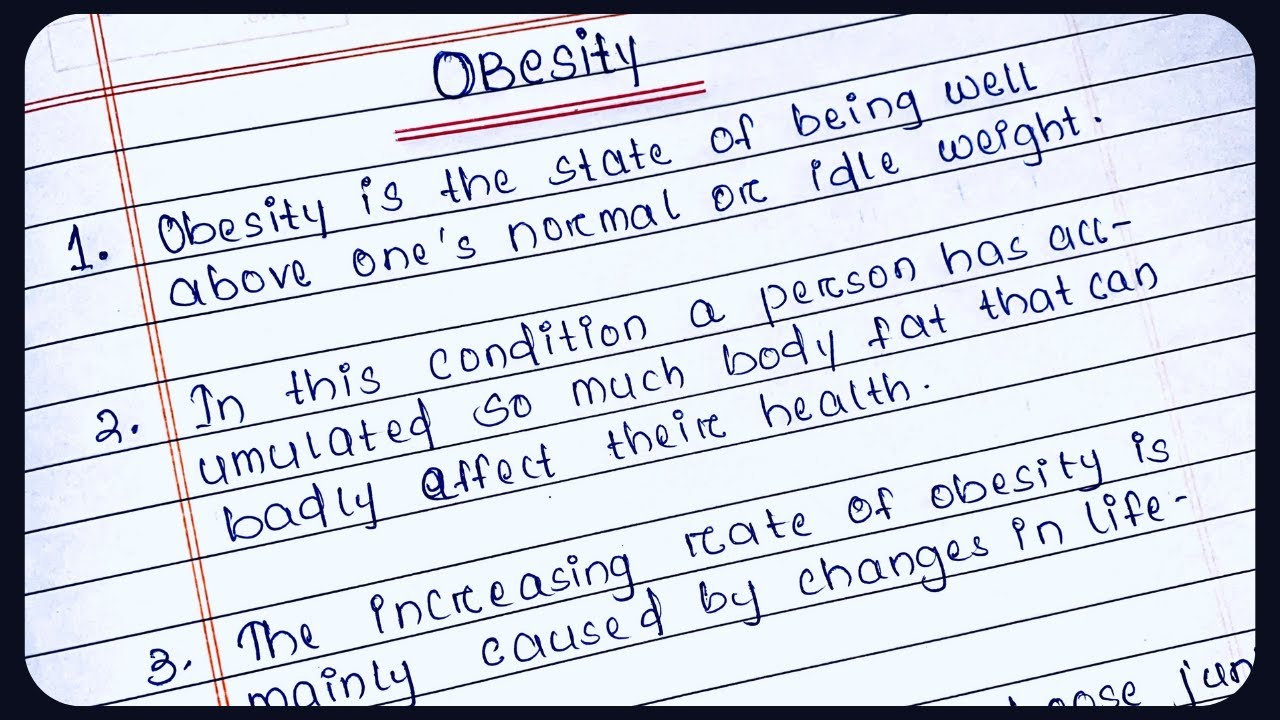 Obesity
1. Obesity is the state of being well
above one's normal or idle weight.
2. In this condition a person has acc-
umulated so much body fat that can
badly affect their health.
3. The increasing rate of obesity is
mainly caused by changes in life-